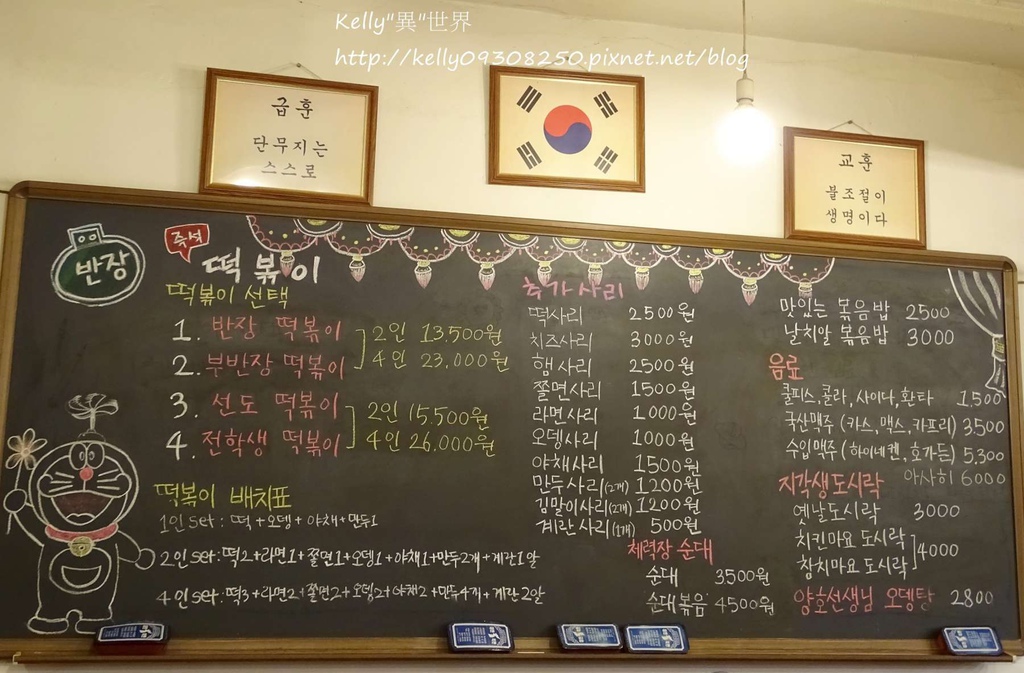 Kelly"異"世界
http://kelly09308250.pixnet.net/blog
급훈
단무지는
스스로
교훈
불조절이
생명이다
반장
즉석
떡볶이
떡볶이 선택
1. 반장 떡볶이
2. 부반장 떡볶이
2인 13,500원
4인 23,000원
3. 선도 떡볶이
4. 전학생 떡볶이
2인 15,500원
4인 26,000원
떡볶이 배치표
1인 set : 떡+오뎅+야채+만두1
2인 set : 떡2+라면1+쫄면1+오뎅1+야채1+만두2개+계란1알
4인 set : 떡3+라면2+쫄면2+오뎅2+야채2+만두4개+계란2알
추가사리
떡사리 2500원
치즈사리 3000원
햄사리 2500원
쫄면사리 1500원
라면사리 1000원
오뎅사리 1000원
야채사리 1500원
만두사리(2개) 1200원
김말이사리(2개) 1200원
계란사리(1개) 500원
체력장 순대
순대 3500원
순대볶음 4500원
맛있는 볶음밥 2500
날치알 볶음밥 3000
음료
쿨피스, 콜라, 사이다, 환타 1,500
국산맥주 (카스, 맥스, 카프리) 3500
수입맥주 (하이네켄, 호가든) 5,300
아사히 6000
지각생도시락
옛날도시락 3000
치킨마요 도시락
참치마요 도시락
4000
양호선생님 오뎅탕 2800